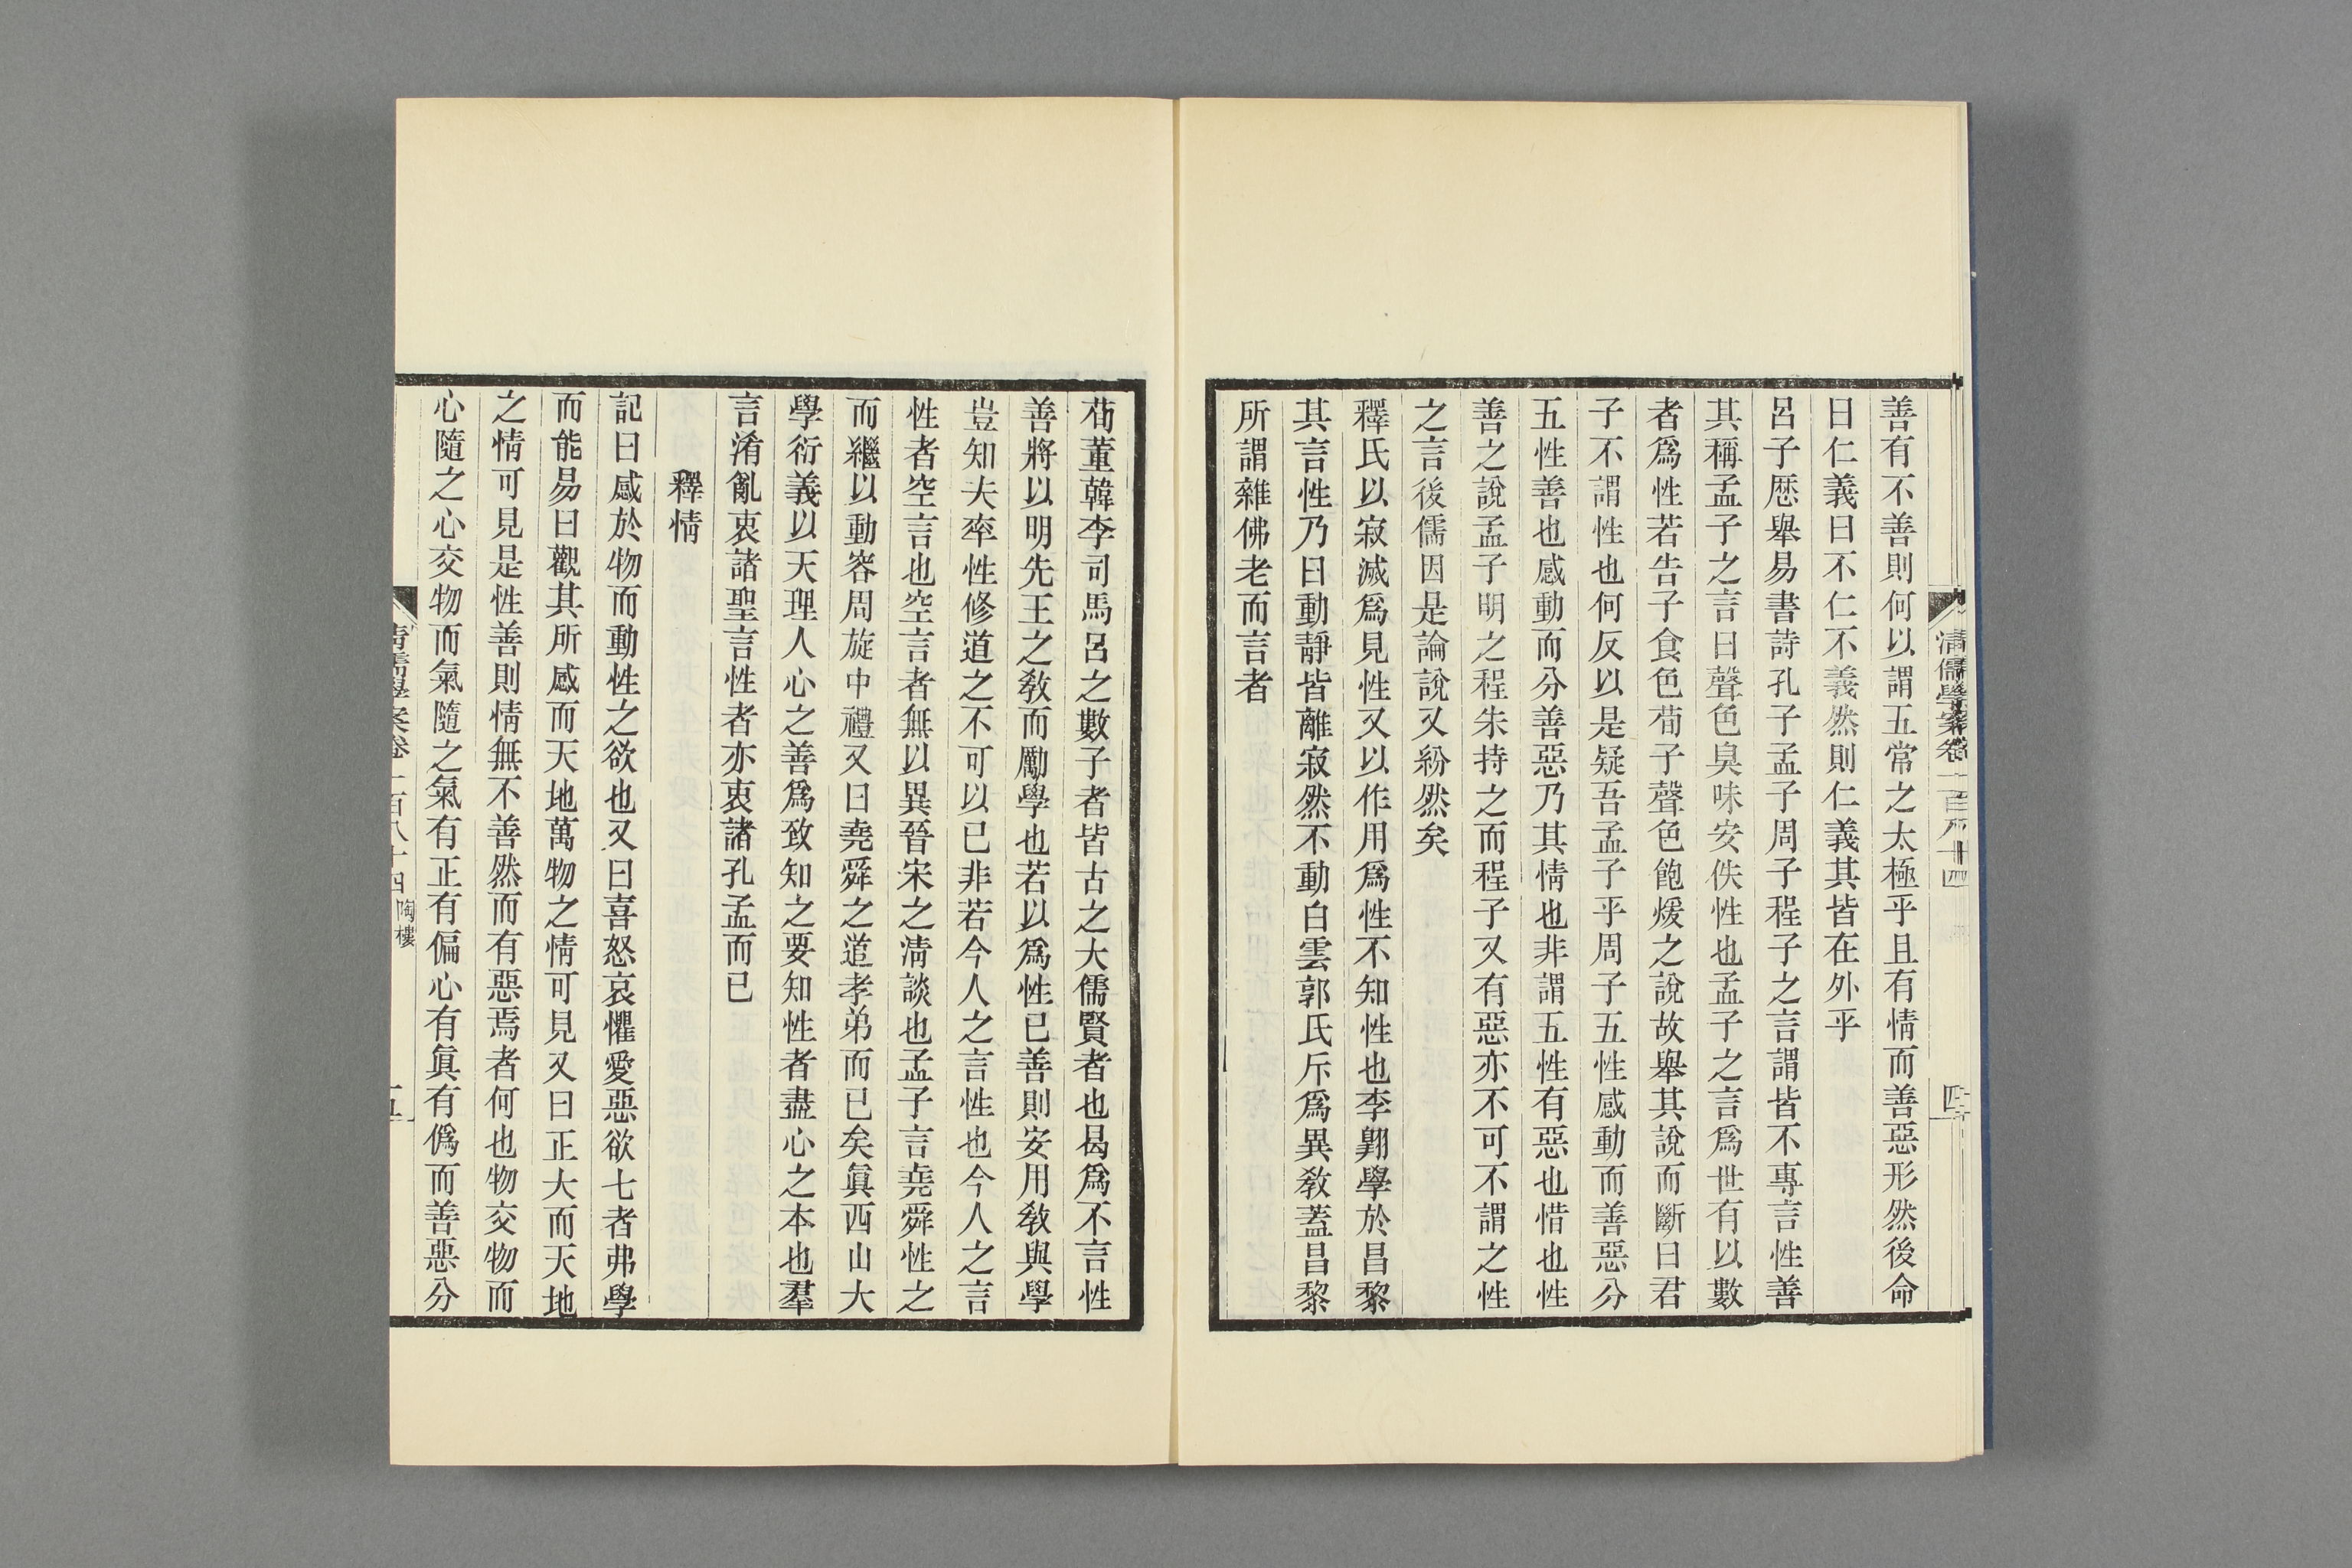 清儒學案卷一百八十四
善有不善則何以謂五常之太極乎且有情而善惡形然後命
曰仁義曰不仁不義然則仁義其皆在外乎
呂子歷舉易書詩孔子孟子周子程子之言謂皆不專言性善
其稱孟子之言曰聲色臭味安佚性也孟子之言爲世有以數
者爲性若告子食色荀子聲色飽煖之說故舉其說而斷曰君
子不謂性也何反以是疑吾孟子乎周子五性感動而善惡分
五性善也感動而分善惡乃其情也非謂五性有惡也惜也性
善之說孟子明之程朱持之而程子又有惡亦不可不謂之性
之言後儒因是論說又紛然矣
釋氏以寂滅爲見性又以作用爲性不知性也李翺學於昌黎
其言性乃曰動靜皆離寂然不動白雲郭氏斥爲異敎蓋昌黎
所謂雜佛老而言者
荀董韓李司馬呂之數子者皆古之大儒賢者也曷爲不言性
善將以明先王之敎而勵學也若以爲性已善則安用敎與學
豈知夫率性修道之不可以已非若今人之言性也今人之言
性者空言也空言者無以異晉宋之淸談也孟子言堯舜性之
而繼以動容周旋中禮又曰堯舜之道孝弟而已矣眞西山大
學衍義以天理人心之善爲致知之要知性者盡心之本也羣
言淆亂衷諸聖言性者亦衷諸孔孟而已
釋情
記曰感於物而動性之欲也又曰喜怒哀懼愛惡欲七者弗學
而能易曰觀其所感而天地萬物之情可見又曰正大而天地
之情可見是性善則情無不善然而有惡焉者何也物交物而
心隨之心交物而氣隨之氣有正有偏心有眞有僞而善惡分
清儒學案卷一百八十四 陶樓